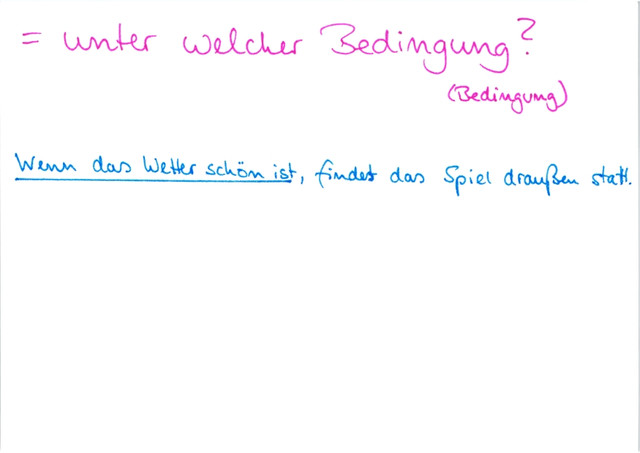 = unter welcher Bedingung?
(Bedingung)
Wenn das Wetter schön ist, findet das Spiel draußen statt.